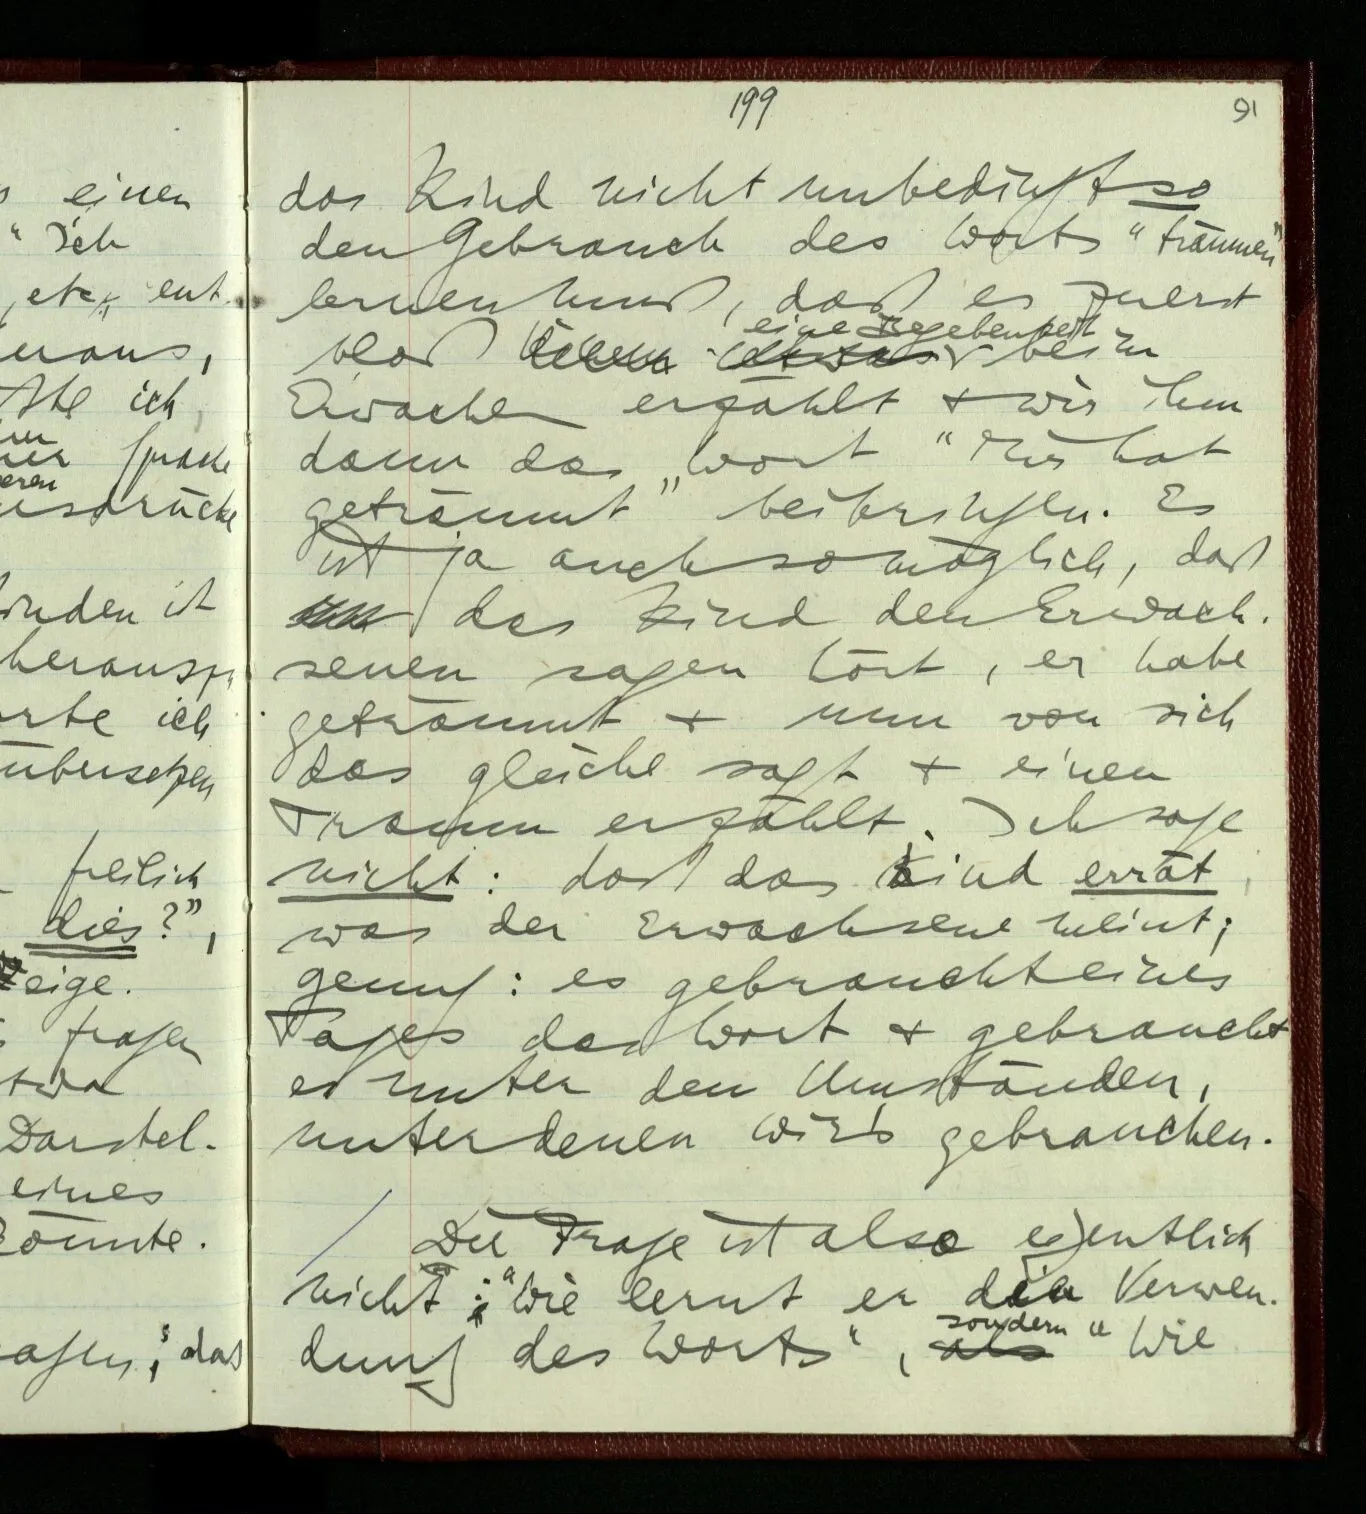 199
91
einen
" Ich
etc, ent
raus,
ich,
Sprache
eren
usdrücke
inden ist
heraus
ich
übersetzen
freilich
dies?",
eige.
fragen
etwa
Darstel-
eines
könnte.
das
das Kind nicht unbedingt so
den Gebrauch des Worts "träumen"
lernen muß, daß es zuerst
eine Begebenheit
bloß etwas beim
Erwachen erzählt + wir ihm
dann das Wort "Mir hat
geträumt" beibringen. Es
ist ja auch so möglich, daß
das Kind den Erwach-
senen sagen hört, er habe
geträumt + nun von sich
das gleiche sagt + einen
Traum erzählt. Ich sage
nicht: daß das Kind errät,
was der Erwachsene meint;
genug: es gebraucht eines
Tages das Wort + gebraucht
es unter den Umständen,
unter denen wir's gebrauchen.
/ Die Frage ist also eigentlich
nicht: "Wie lernt er die Verwen-
sondern
dung des Worts", als "Wie